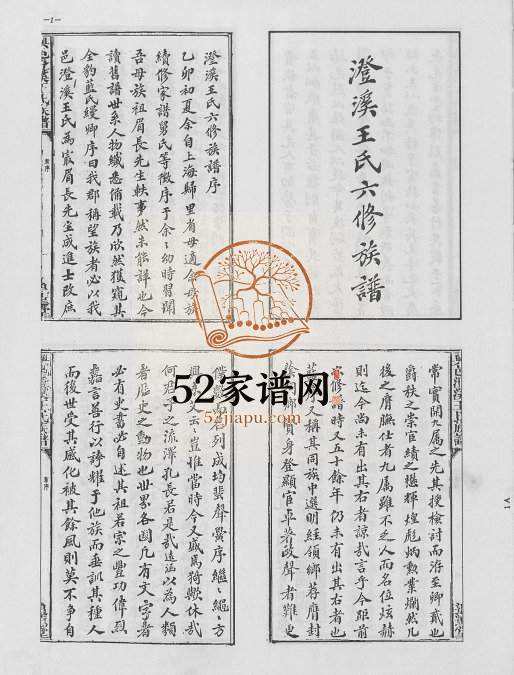 -1-
澄溪王氏六修族譜
澄溪王氏六修族譜序
乙卯初夏余自上海歸里省母適余母族
續修家譜舅氏等徵序于余余幼時習聞
吾母族祖眉長先生軼事然未能詳也今
讀舊譜世系人物纖悉備載乃欣然獲窺其
全豹藍氏縵卿序曰我郡稱望族者必以我
邑澄溪王氏為最眉長先生成進士改庶
常實開九屬之先其授檢討而洊至卿貳也
爵秩之崇官績之懋輝煌彪炳勳業爛然凡
後之膺膴仕者九屬雖不乏人而名位炫赫
則迄今尚未有出其右者諒哉言乎今距前
修譜時又五十餘年仍未有出其右者也
又稱其同族中選明經領鄉荐膺封
身登顯官卓著政聲者難更
列成均蜚聲黌序繼繼繩繩方
興 又云豈惟當時今又盛焉猗歟休哉
何 子之流澤孔長若是哉遠涵以為人類
者歷史之動物也世界各國凡有文字者
必有史書必自述其祖若宗之豐功偉烈
嘉言善行以誇耀于他族而垂訓其種人
而後世受其感化被其餘風則莫不爭自
52家谱网
52jiapu.com